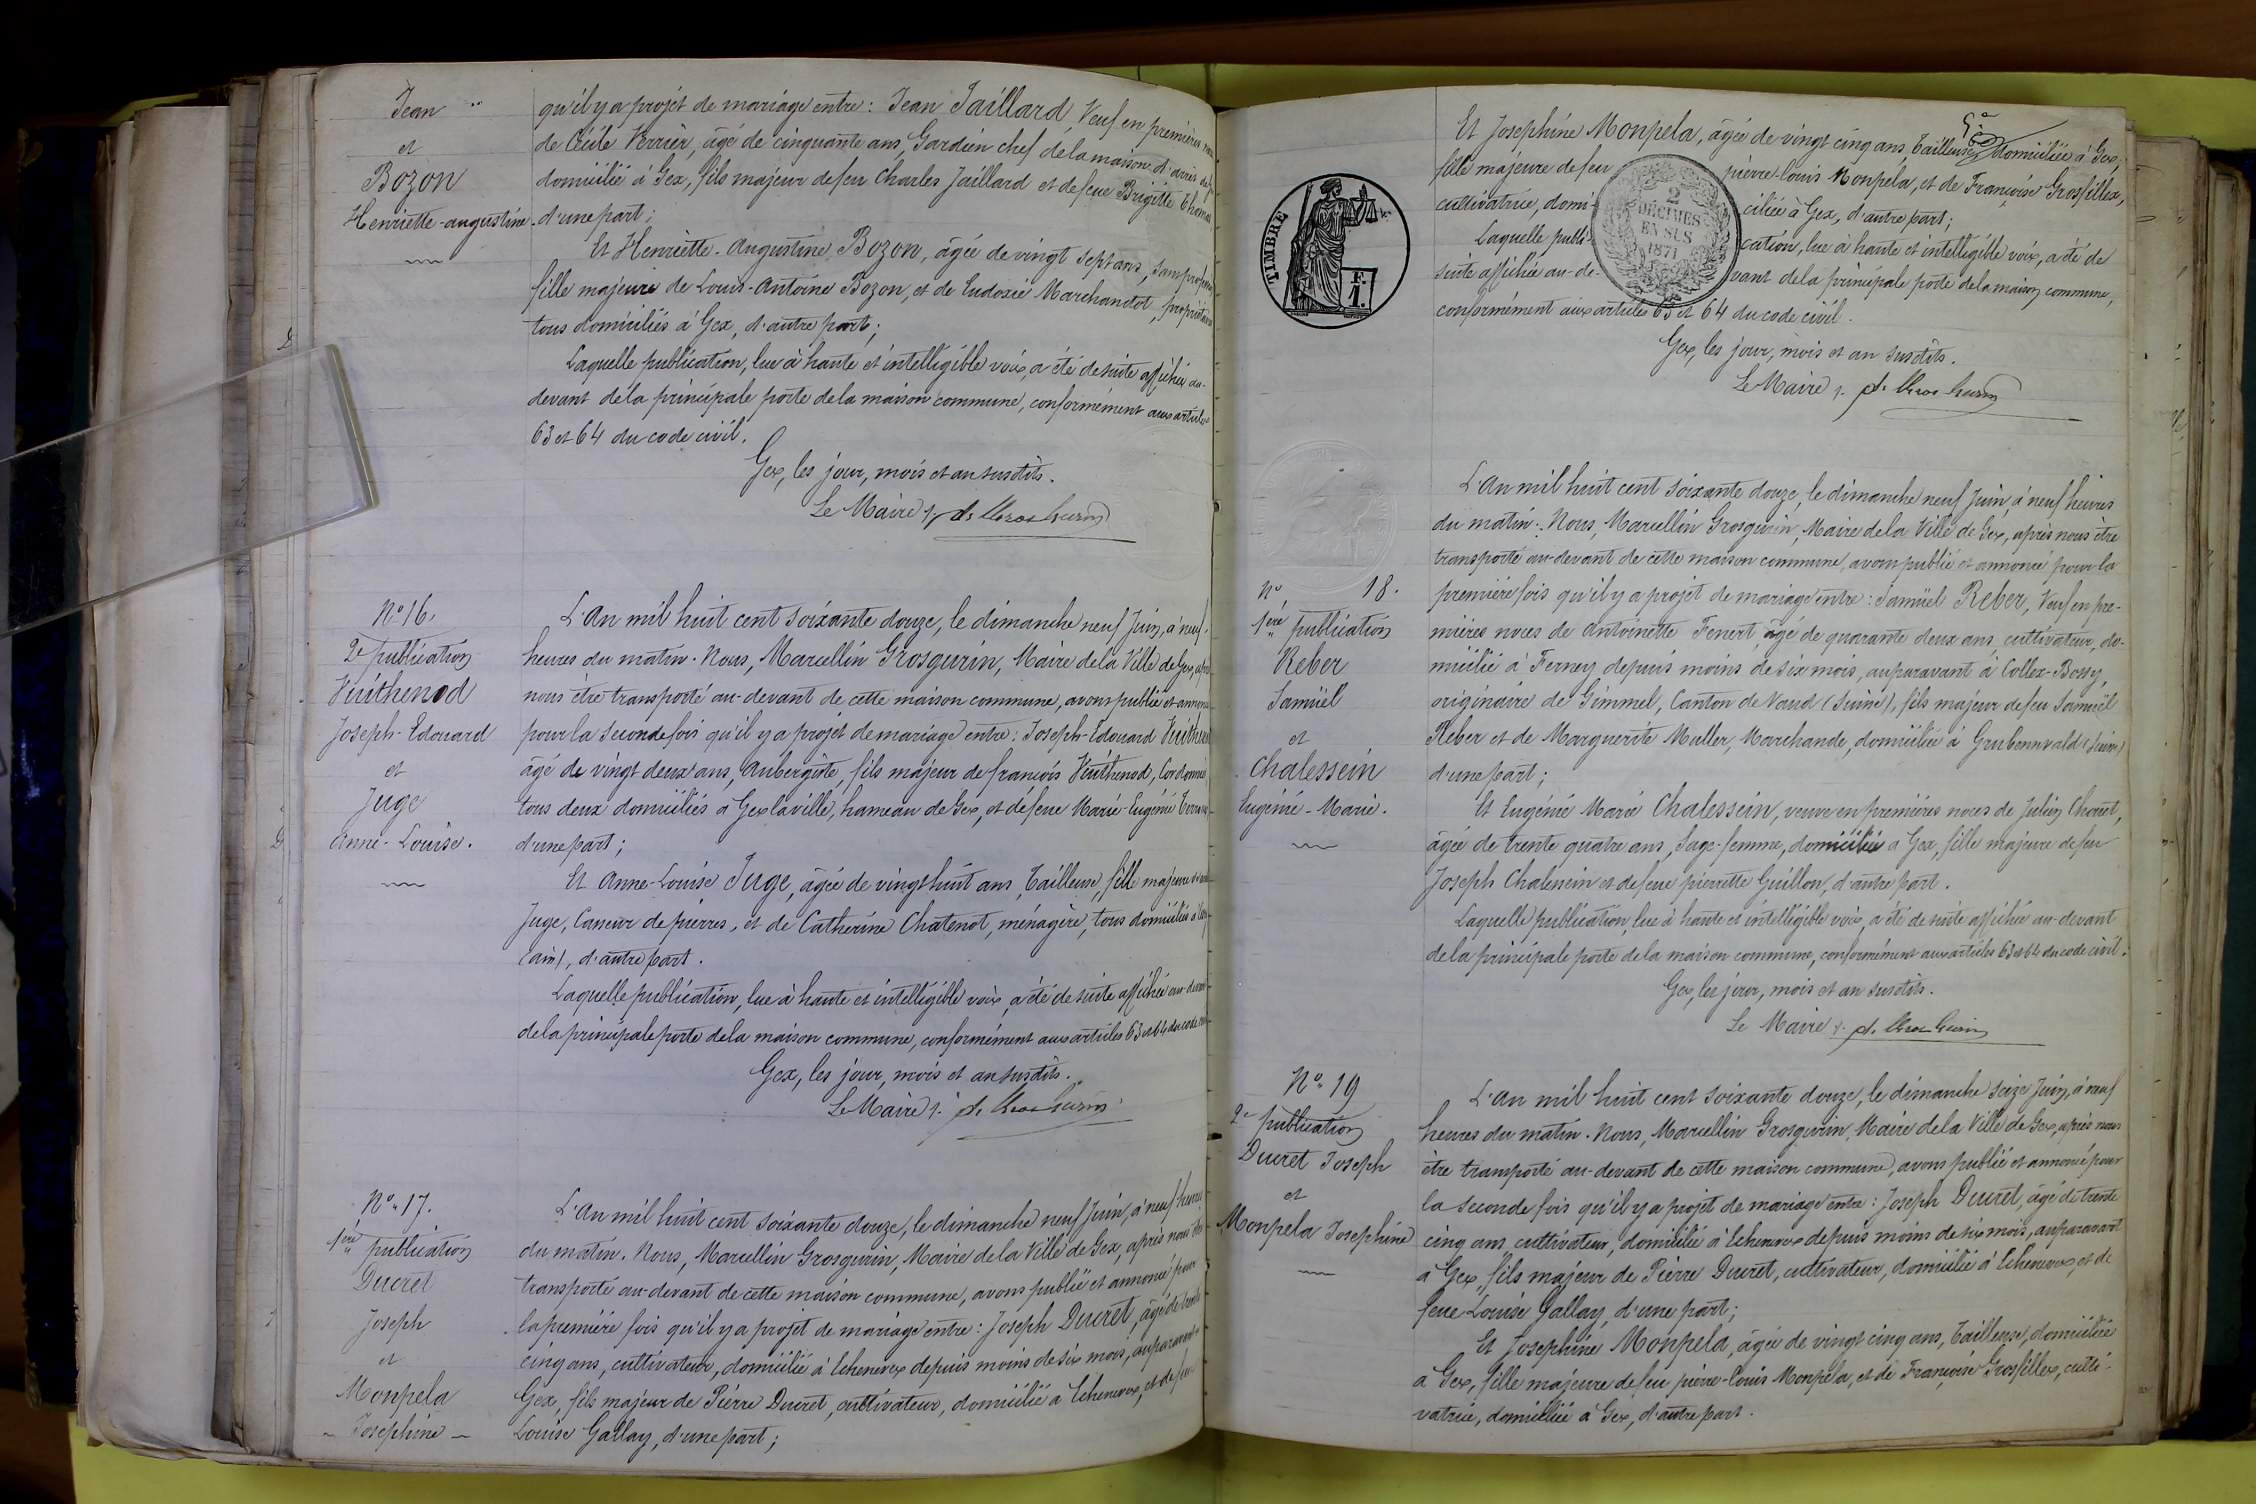 Jean
et
Bozon
Henriette-augustine
qu'il y a projet de mariage entre: Jean Jaillard, Veuf en premières
de Cécile Verrier, âgé de cinquante ans, Gardien chef de la maison d'arrêt
domicilié à Gex, fils majeur de feu Charles Jaillard et de feue Brigitte Thomas
d'une part;
Et Henriette-Augustine Bozon, âgée de vingt sept ans, sans profession
fille majeure de Louis-Antoine Bozon, et de Eudoxie Marchandot, propriétaires
tous domiciliés à Gex, d'autre part;
Laquelle publication, lue à haute et intelligible voix, a été de suite affichée au-
devant de la principale porte de la maison commune, conformément aux articles
63 et 64 du code civil.
Gex, les jour, mois et an susdits.
Le Maire
No 16.
2e publication
Vuithenod
Joseph-Edouard
et
Juge
Anne-Louise.
L'An mil huit cent soixante douze, le dimanche neuf Juin, à neuf
heures du matin. Nous, Marcellin Grosgurin, Maire de la Ville de Gex, après
nous être transporté au-devant de cette maison commune, avons publié et annoncé
pour la seconde fois qu'il y a projet de mariage entre: Joseph-Edouard Vuithenod
âgé de vingt deux ans, Aubergiste, fils majeur de françois Vuithenod, Cordonnier
tous deux domiciliés à Gex la ville, hameau de Gex, et de feue Marie-Eugénie
d'une part;
Et Anne-Louise Juge, âgée de vingt huit ans, Tailleuse, fille majeure de
Juge, Casseur de pierres, et de Catherine Chatenot, ménagère, tous domiciliés à
(ain), d'autre part.
Laquelle publication, lue à haute et intelligible voix, a été de suite affichée au-devant
de la principale porte de la maison commune, conformément aux articles 63 et 64 du code
Gex, les jour, mois et an susdits.
Le Maire
No 17.
1ère publication
Ducret
Joseph
et
Monpela
Josephine
L'An mil huit cent soixante douze, le dimanche neuf Juin, à neuf heures
du matin. Nous, Marcellin Grosgurin, Maire de la Ville de Gex, après nous être
transporté au-devant de cette maison commune, avons publié et annoncé pour
la première fois qu'il y a projet de mariage entre: Joseph Ducret, âgé de trente
cinq ans, cultivateur, domicilié à Echenevex depuis moins de six mois, auparavant à
Gex, fils majeur de Pierre Ducret, cultivateur, domicilié à Echenevex, et de feue
Louise Gallay, d'une part;
Et Josephine Monpela, âgée de vingt cinq ans, Tailleuse, domiciliée à Gex,
fille majeure de feu pierre-louis Monpela, et de Françoise Grosfillex,
cultivatrice, domiciliée à Gex, d'autre part;
Laquelle publication, lue à haute et intelligible voix, a été de
suite affichée au-devant de la principale porte de la maison commune,
conformément aux articles 63 et 64 du code civil.
Gex, les jour, mois et an susdits.
Le Maire
TIMBRE
F.
1.
2
DÉCIMES
EN SUS
1871
No 18.
1ère publication
Reber
Samuël
et
Chalessein
Eugénie-Marie.
L'An mil huit cent soixante douze, le dimanche neuf Juin, à neuf heures
du matin. Nous, Marcellin Grosgurin, Maire de la Ville de Gex, après nous être
transporté au-devant de cette maison commune, avons publié et annoncé pour la
première fois qu'il y a projet de mariage entre: Samuël Reber, Veuf en pre-
mières noces de Antoinette Fenert, âgé de quarante deux ans, cultivateur, do-
micilié à Ferney depuis moins de six mois, auparavant à Collex-Bossy,
originaire de Gimmel, Canton de Vaud (Suisse), fils majeur de feu Samuël
Reber et de Marguerite Muller, Marchande, domiciliée à Grubennvald (Suisse)
d'une part;
Et Eugénie Marie Chalessein, veuve en premières noces de Julien Chouet,
âgée de trente quatre ans, Sage-femme, domiciliée à Gex, fille majeure de feu
Joseph Chalessein et de feue pierrette Guillon, d'autre part.
Laquelle publication, lue à haute et intelligible voix, a été de suite affichée au-devant
de la principale porte de la maison commune, conformément aux articles 63 et 64 du code civil.
Gex, les jour, mois et an susdits.
Le Maire
No 19
2e publication
Ducret Joseph
et
Monpela Josephine
L'An mil huit cent soixante douze, le dimanche seize Juin, à neuf
heures du matin. Nous, Marcellin Grosgurin, Maire de la Ville de Gex, après nous
être transporté au-devant de cette maison commune, avons publié et annoncé pour
la seconde fois qu'il y a projet de mariage entre: Joseph Ducret, âgé de trente
cinq ans cultivateur, domicilié à Echenevex depuis moins de six mois, auparavant
à Gex, fils majeur de Pierre Ducret, cultivateur, domicilié à Echenevex, et de
feue Louise Gallay, d'une part;
Et Josephine Monpela, âgée de vingt cinq ans, Tailleuse, domiciliée
à Gex, fille majeure de feu pierre-louis Monpela, et de Françoise Grosfillex, culti-
vatrice, domiciliée à Gex, d'autre part.